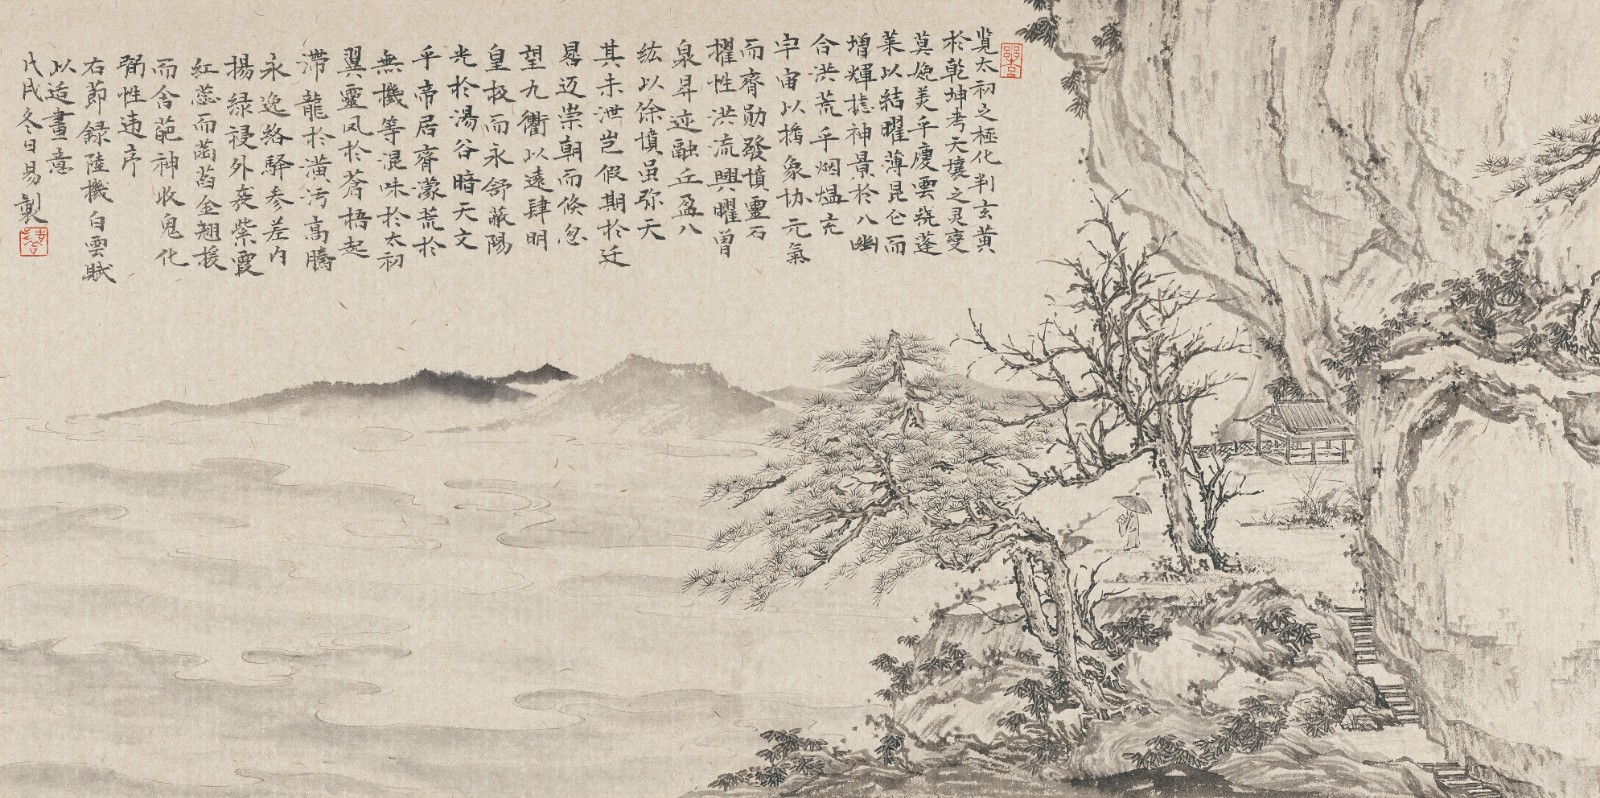 览太初之極化判玄黄
於乾坤考天壤之灵變
莫婉美乎慶雲曉蓬
莱以結曜薄昆仑而
增輝攄神景於八幽
合洪荒乎烟煴充
宇宙以播象协元氣
而齊勋發憤靈石
擢性洪流興曜曾
泉昇迹融丘盈八
紘以餘憤虽弥天
其未泄岂假期於迁
晷迈崇朝而倏忽
望九衢以遠肆明
皇极而永舒蔽陽
光於湯谷暗天文
乎帝居齊濛荒於
無機等混味於太初
翼靈凤於蒼梧起
滯龍於潢污高騰
永逸絡驛参差内
揚緑祲外表紫霞
红蕊而菡萏金翘援
而含葩神收鬼化
弼性违序
右節録陸機白雲賦
以适畫意
戊戌冬日易製